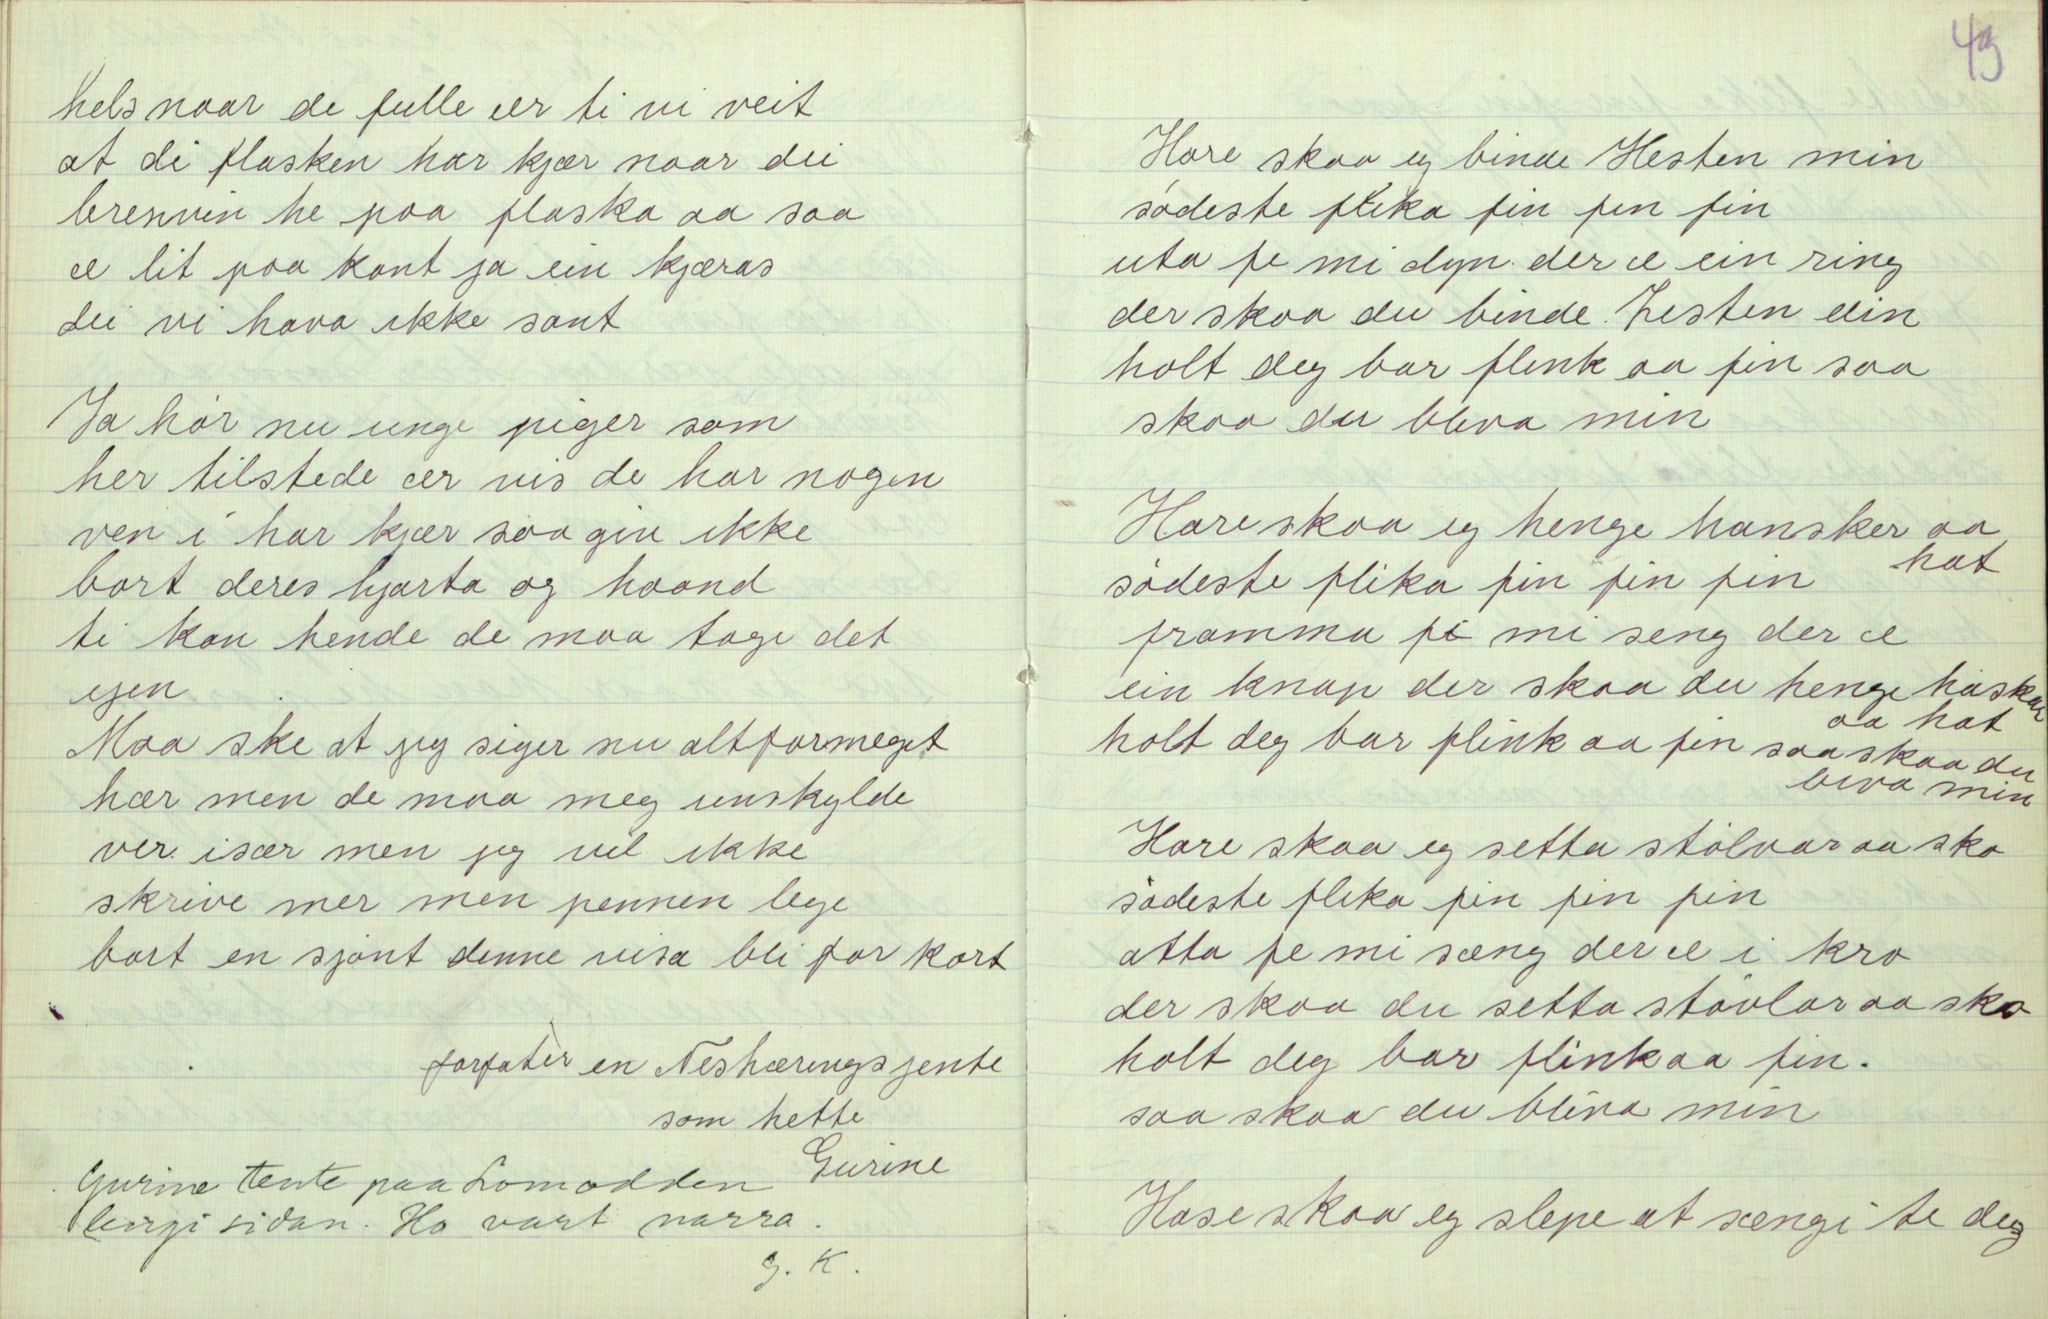 hels naar de fulle er ti vi veit
at di flasken har kjær naar dei
brenvin he paa flaska aa saa
æ lit paa kant ja ein kjæras
dei vi hava ikke sant
Ja hør nu unge piger som
her tilstede er vis de har nogen
ven i har kjær saa giv ikke
bort deres hjarta og haand
ti kan hende de maa tage det
igen
Maa ske at jeg siger nu altformeget
hær men de maa meg unskylde
ver især men jeg vil ikke
skrive mer men pennen lege
bort en sjønt denne visa bli for kort
forfatèr en Neshæringsjente
som hette
Gurine
Gurine tente paa Lomodden
lengi sidan. Ho vart narra.
G. K.
43
Hare skaa eg binde Hesten min
sødeste flika fin fin fin
uta fe mi dyn der æ ein ring
der skaa du binde Hesten din
holt deg bar flink aa fin saa
skaa du bliva min
Hare skaa eg henge hansker aa
hat
sødeste flika fin fin fin
framma fe mi seng der æ
ein knap der skaa du henge hasker
aa hat
holt deg bar flink aa fin saa skaa du
biva min
Hare skaa eg setta stølvar aa sko
sødeste flika fin fin fin
atta fe mi sæng der æ i kro
der skaa du setta støvlar aa sko
holt deg bar flink aa fin.
saa skaa du bliva min
Hase skaa eg slepe at sængi te deg